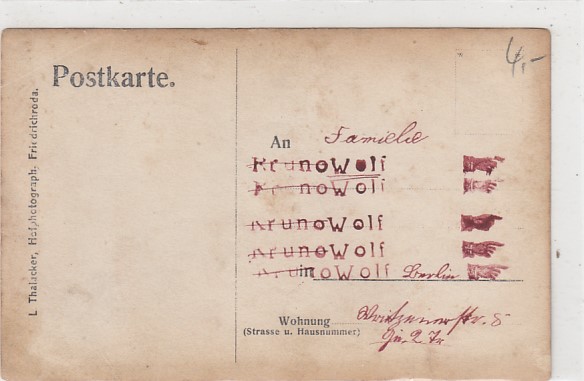 4,-
Postkarte.
L. Thalacker, Hofphotograph. Friedrichroda.
An Familie
Bruno Wolf
Bruno Wolf
Bruno Wolf
Bruno Wolf
Bruno Wolf
in Berlin
Wohnung
(Strasse u. Hausnummer)